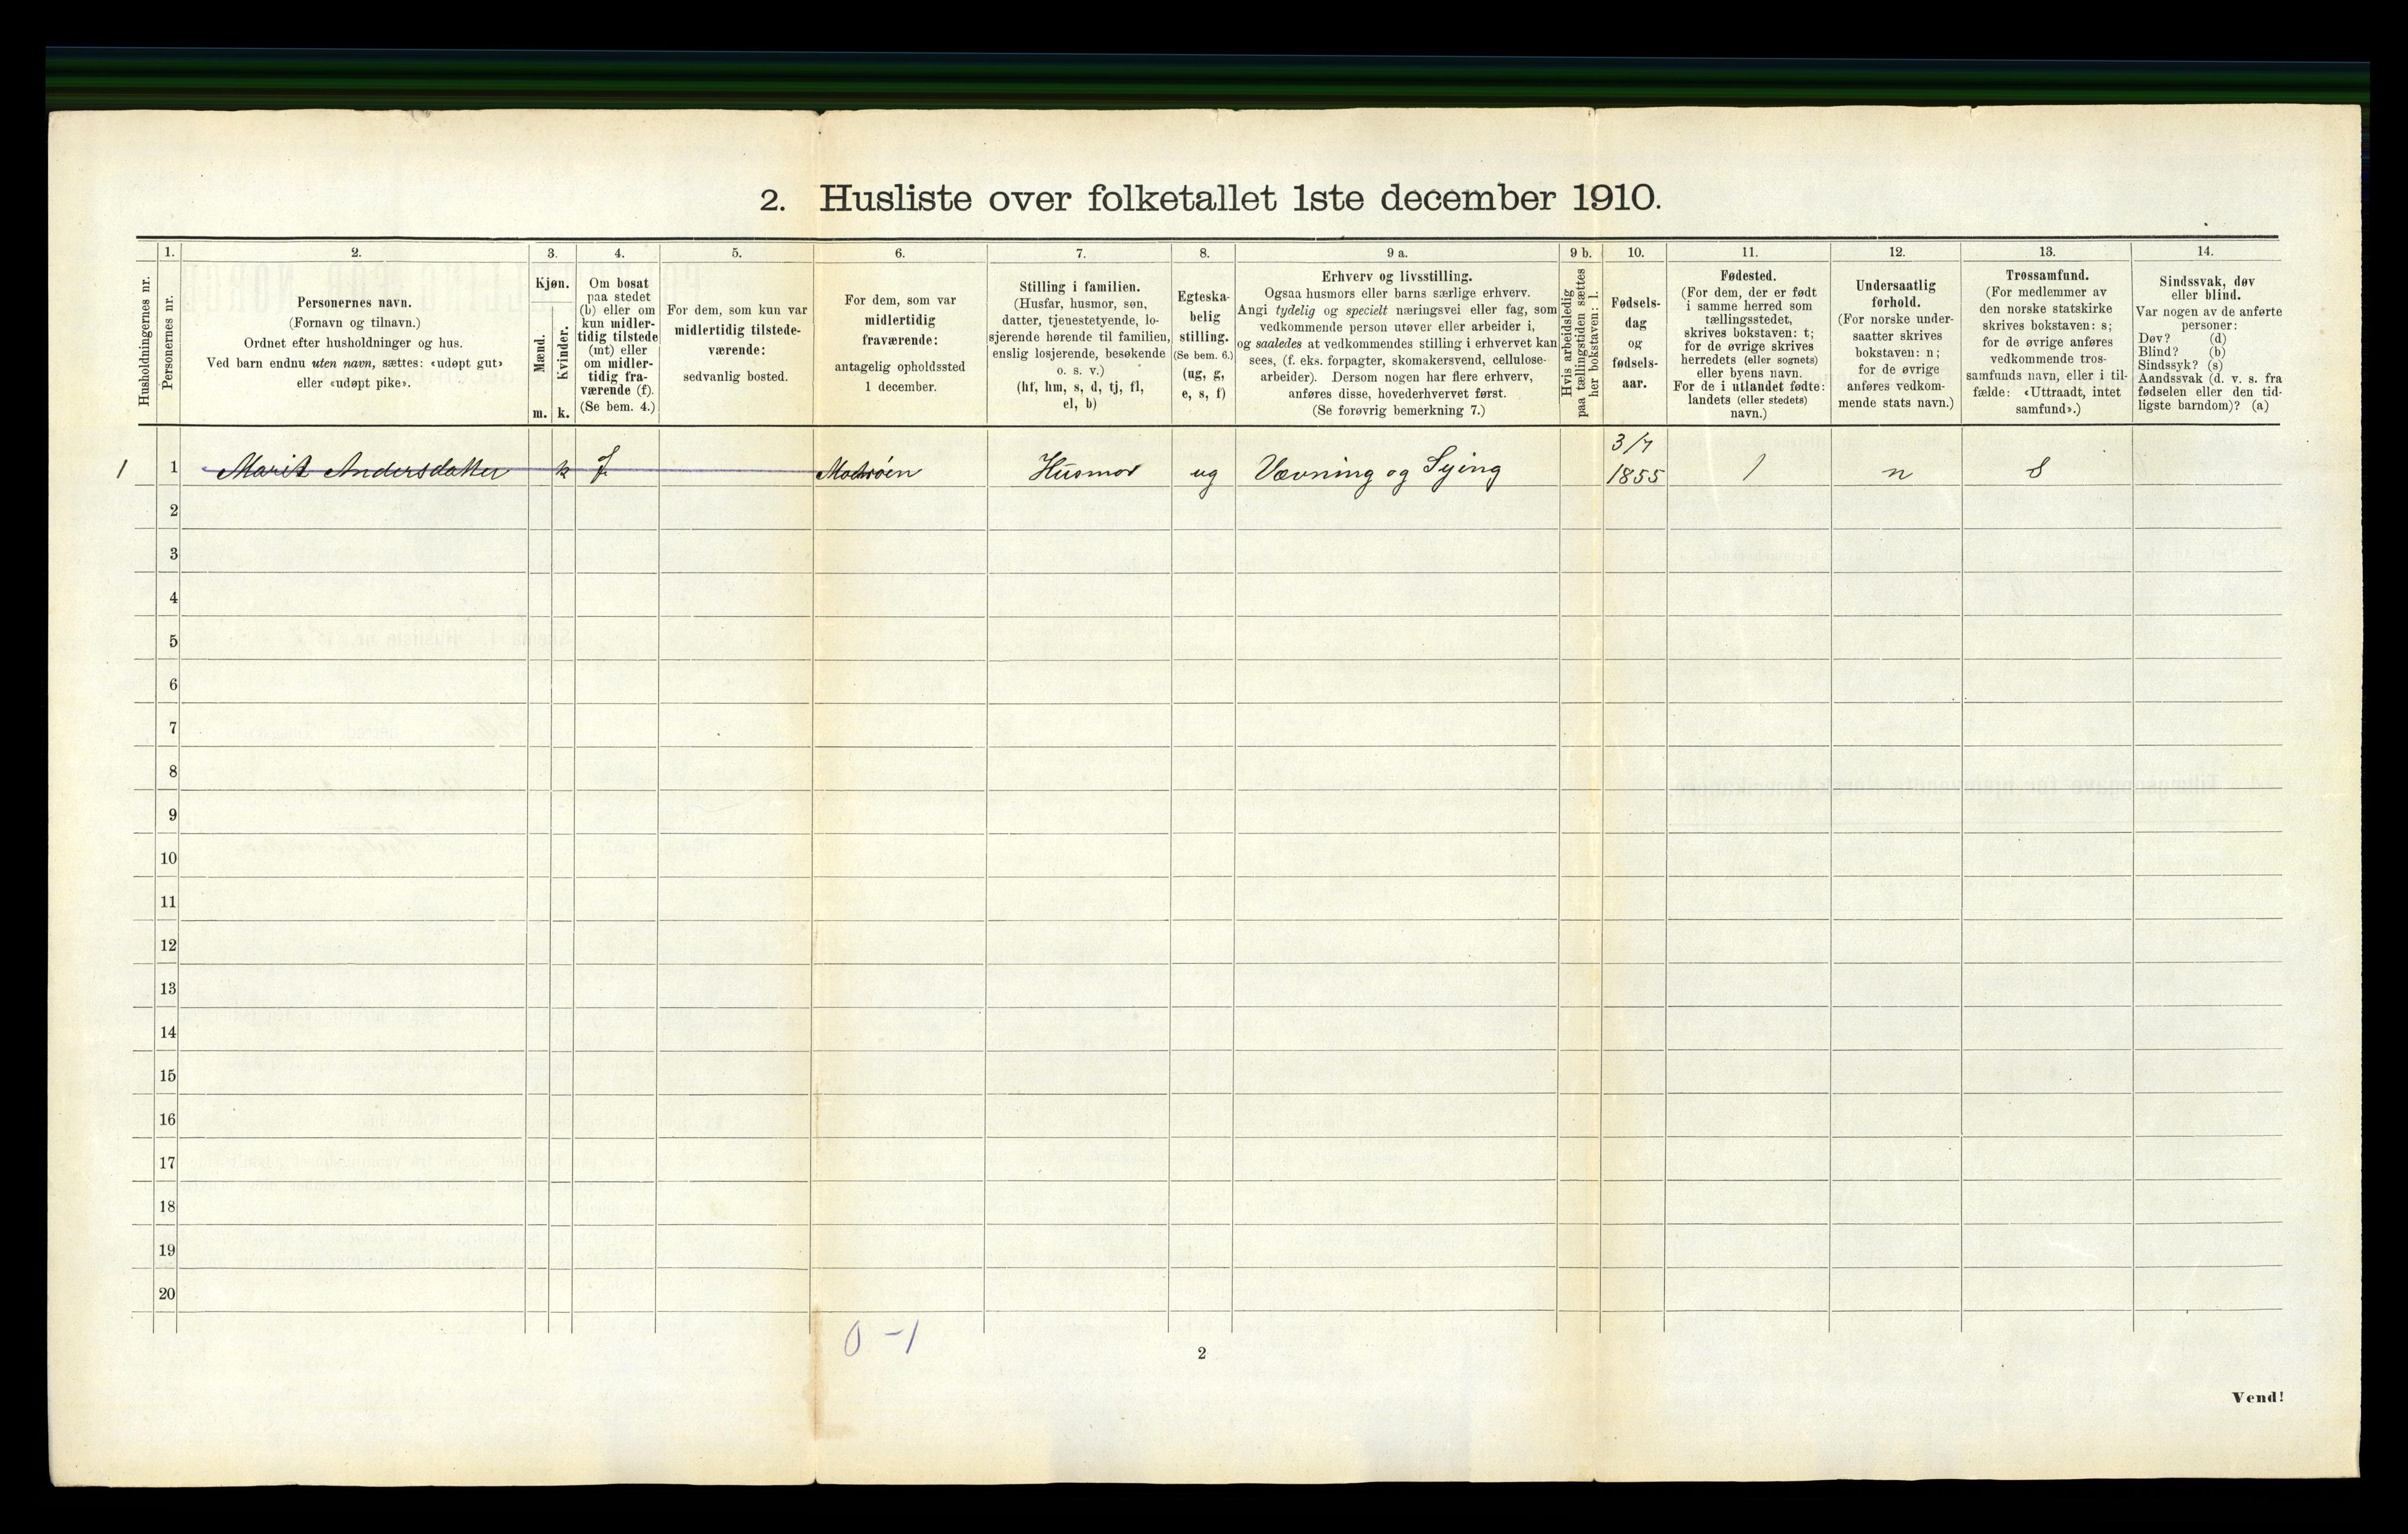 2. Husliste over folketallet 1ste december 1910.
Husholdningernes nr.
1.
Personernes nr.
2.
Personernes navn.
(Fornavn og tilnavn.)
Ordnet efter husholdninger og hus.
Ved barn endnu uten navn, sættes: «udøpt gut»
eller «udøpt pike».
3.
Kjøn.
Mænd.
m.
Kvinder.
k.
4.
Om bosat
paa stedet
(b) eller om
kun midler-
tidig tilstede
(mt) eller
om midler-
tidig fra-
værende (f).
(Se bem. 4.)
5.
For dem, som kun var
midlertidig tilstede-
værende:
sedvanlig bosted.
6.
For dem, som var
midlertidig
fraværende:
antagelig opholdssted
1 december.
7.
Stilling i familien.
(Husfar, husmor, søn,
datter, tjenestetyende, lo-
sjerende hørende til familien,
enslig losjerende, besøkende
o. s. v.)
(hf, hm, s, d, tj, fl,
el, b)
8.
Egteska-
belig
stilling.
(Se bem. 6.)
(ug, g,
e, s, f)
9 a.
Erhverv og livsstilling.
Ogsaa husmors eller barns særlige erhverv.
Angi tydelig og specielt næringsvei eller fag, som
vedkommende person utøver eller arbeider i,
og saaledes at vedkommendes stilling i erhvervet kan
sees, (f. eks. forpagter, skomakersvend, cellulose-
arbeider). Dersom nogen har flere erhverv,
anføres disse, hovederhvervet først.
(Se forøvrig bemerkning 7.)
9 b.
Hvis arbeidsledig
paa tællingstiden sættes
her bokstaven: l.
10.
Fødsels-
dag
og
fødsels-
aar.
11.
Fødested.
(For dem, der er født
i samme herred som
tællingsstedet,
skrives bokstaven: t;
for de øvrige skrives
herredets (eller sognets)
eller byens navn.
For de i utlandet fødte:
landets (eller stedets)
navn.)
12.
Undersaatlig
forhold.
(For norske under-
saatter skrives
bokstaven: n;
for de øvrige
anføres vedkom-
mende stats navn.)
13.
Trossamfund.
(For medlemmer av
den norske statskirke
skrives bokstaven: s;
for de øvrige anføres
vedkommende tros-
samfunds navn, eller i til-
fælde: «Uttraadt, intet
samfund».)
14.
Sindssvak, døv
eller blind.
Var nogen av de anførte
personer:
Døv? (d)
Blind? (b)
Sindssyk? (s)
Aandssvak (d. v. s. fra
fødselen eller den tid-
ligste barndom)? (a)
3/7
1 1 Marit Andersdatter k f Husmor ug Vævning og Sying 1855 n s
2
3
4
5
6
7
8
9
10
11
12
13
14
15
16
17
18
19
20
0 - 1
2
Vend!